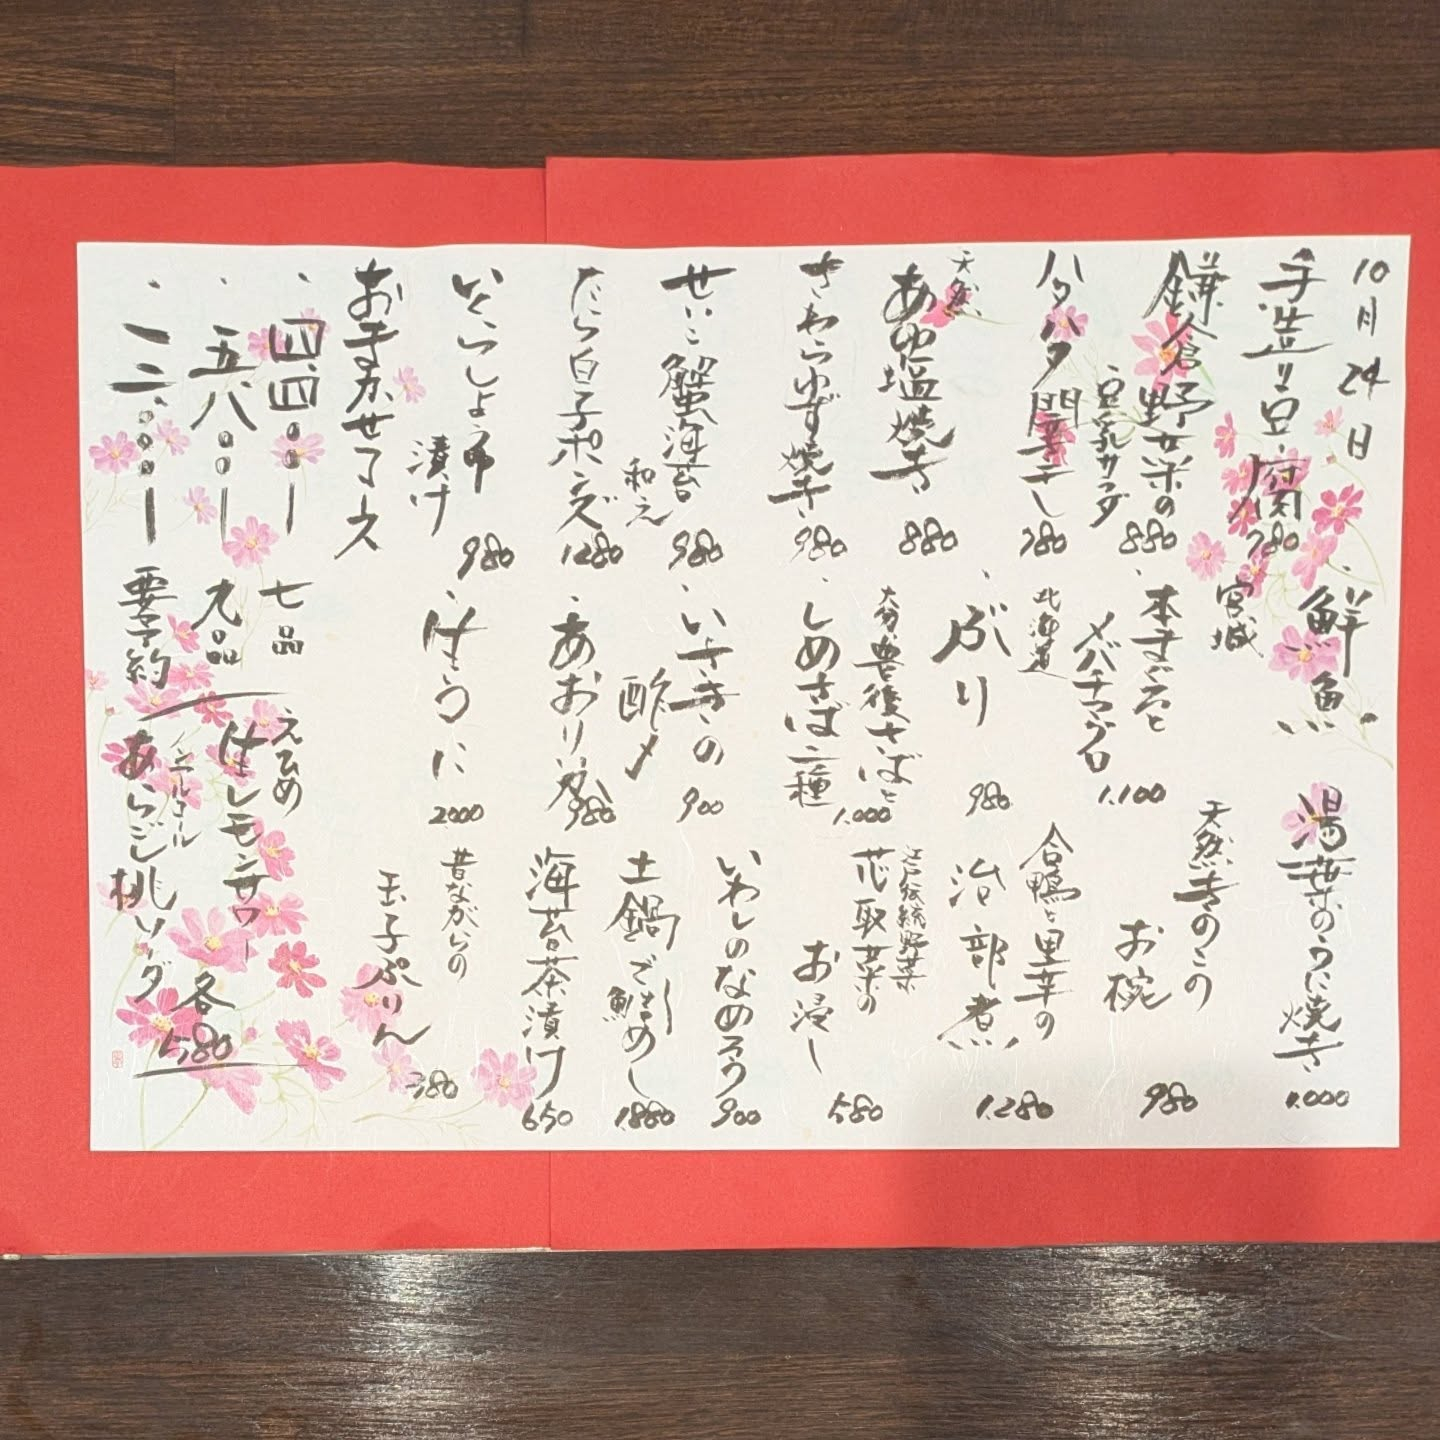 10月24日
手造り豆腐
780
鎌倉野菜の
豆乳サラダ
880
ハタハタ開き干し
780
天然
あゆ塩焼き
880
さわらゆず焼き
980
せいこ蟹海苔
和え
980
たら白子ポンズ
1280
いくらしょう油
漬け
980
お手まかせコース
・四.四〇〇ー
七品
・五.八〇〇ー
九品
・一二.〇〇〇ー
要予約
・鮮魚
宮城
・本まぐろと
メバチマグロ
1.100
北海道
・ぶり
980
大分豊後さばと
・しめさば二種
1.000
・いさきの
酢〆
900
・あおりいか
980
・生うに
2000
湯葉のうに焼き
1.000
天然きのこの
お椀
980
合鴨と里芋の
治部煮
1.280
江戸伝統野菜
芯取菜の
お浸し
580
いわしのなめろう
900
土鍋で鮭めし
1880
海苔茶漬け
650
昔ながらの
玉子ぷりん
380
えひめ
生レモンサワー
ノンアルコール
あらごし桃ソーダ
各580